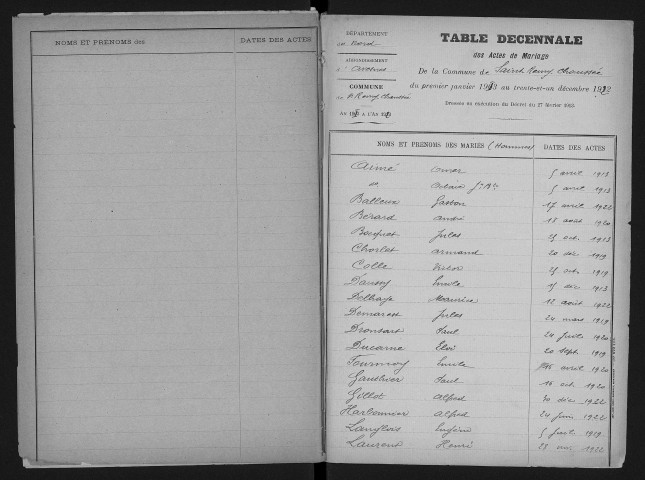 NOMS ET PRENOMS des
DATES DES ACTES
DÉPARTEMENT
du Nord
ARRONDISSEMENT
d'Avesnes
COMMUNE
de St Remy chaussée
TABLE DECENNALE
des Actes de Mariage
De la Commune de Saint Remy chaussée
du premier janvier 1913 au trente-et-un décembre 1922
Dressée en exécution du Décret du
NOMS ET PRENOMS DES MARIÉS (Hommes) DATES DES ACTES
Aimé Omer 5 avril 1913
5 avril 1913
Balleux Gaston 17 avril 1922
Bérard André 18 août 1920
Bouquet Jules 25 oct. 1913
Charlet armand 20 déc 1919
Colle 25 oct. 1919
Emile déc 1913
Delhaye Maurice 12 août 1922
Demarest Jules 24 mars 1919
Dronsart Paul 24 juil. 1920
Ducarne Eloi 20 sept 1919
Fournoy Emile avril 1920
Gauthier Paul 16 oct. 1920
Gillot Alfred 30 déc 1922
Harbonnier Alfred 24 juin 1922
Langlois Eugène 5 juil. 1919
Laurent Henri 23 1922